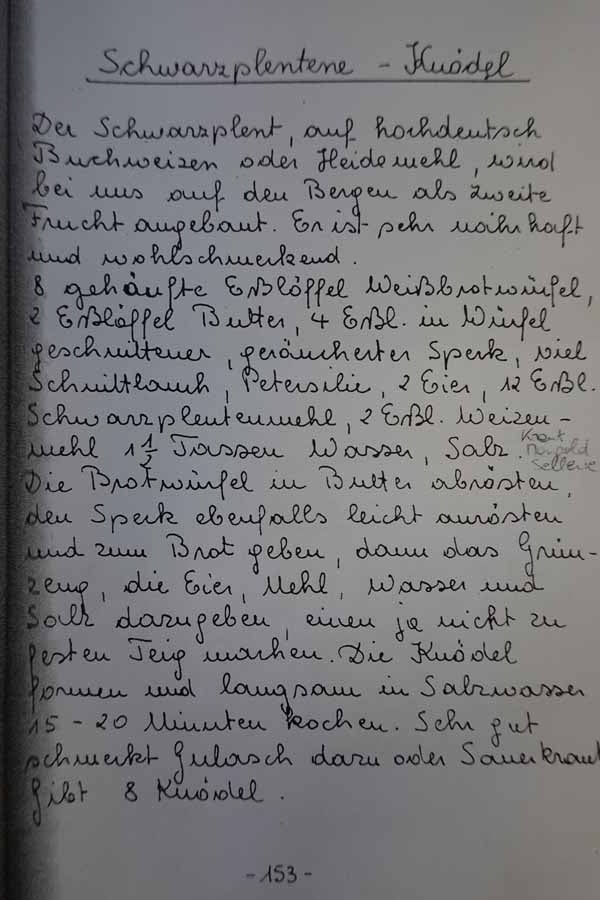 Schwarzplentene - Knödel
Der Schwarzplent, auf hochdeutsch
Buchweizen oder Heidemehl, wird
bei uns auf den Bergen als zweite
Frucht angebaut. Er ist sehr nahrhaft
und wohlschmeckend.
8 gehäufte Eßlöffel Weißbrotwürfel,
2 Eßlöffel Butter, 4 Eßl. in Würfel
geschnittener, geräucherter Speck, viel
Schnittlauch, Petersilie, 2 Eier, 12 Eßl.
Schwarzplentenmehl, 2 Eßl. Weizen-
mehl 1 1/2 Tassen Wasser, Salz.
Kraut
Mangold
Sellerie
Die Brotwürfel in Butter abrösten,
den Speck ebenfalls leicht anrösten
und zum Brot geben, dann das Grün-
zeug, die Eier, Mehl, Wasser und
Salz dazugeben, einen ja nicht zu
festen Teig machen. Die Knödel
formen und langsam in Salzwasser
15 - 20 Minuten kochen. Sehr gut
schmeckt Gulasch dazu oder Sauerkraut
Gibt 8 Knödel.
- 153 -